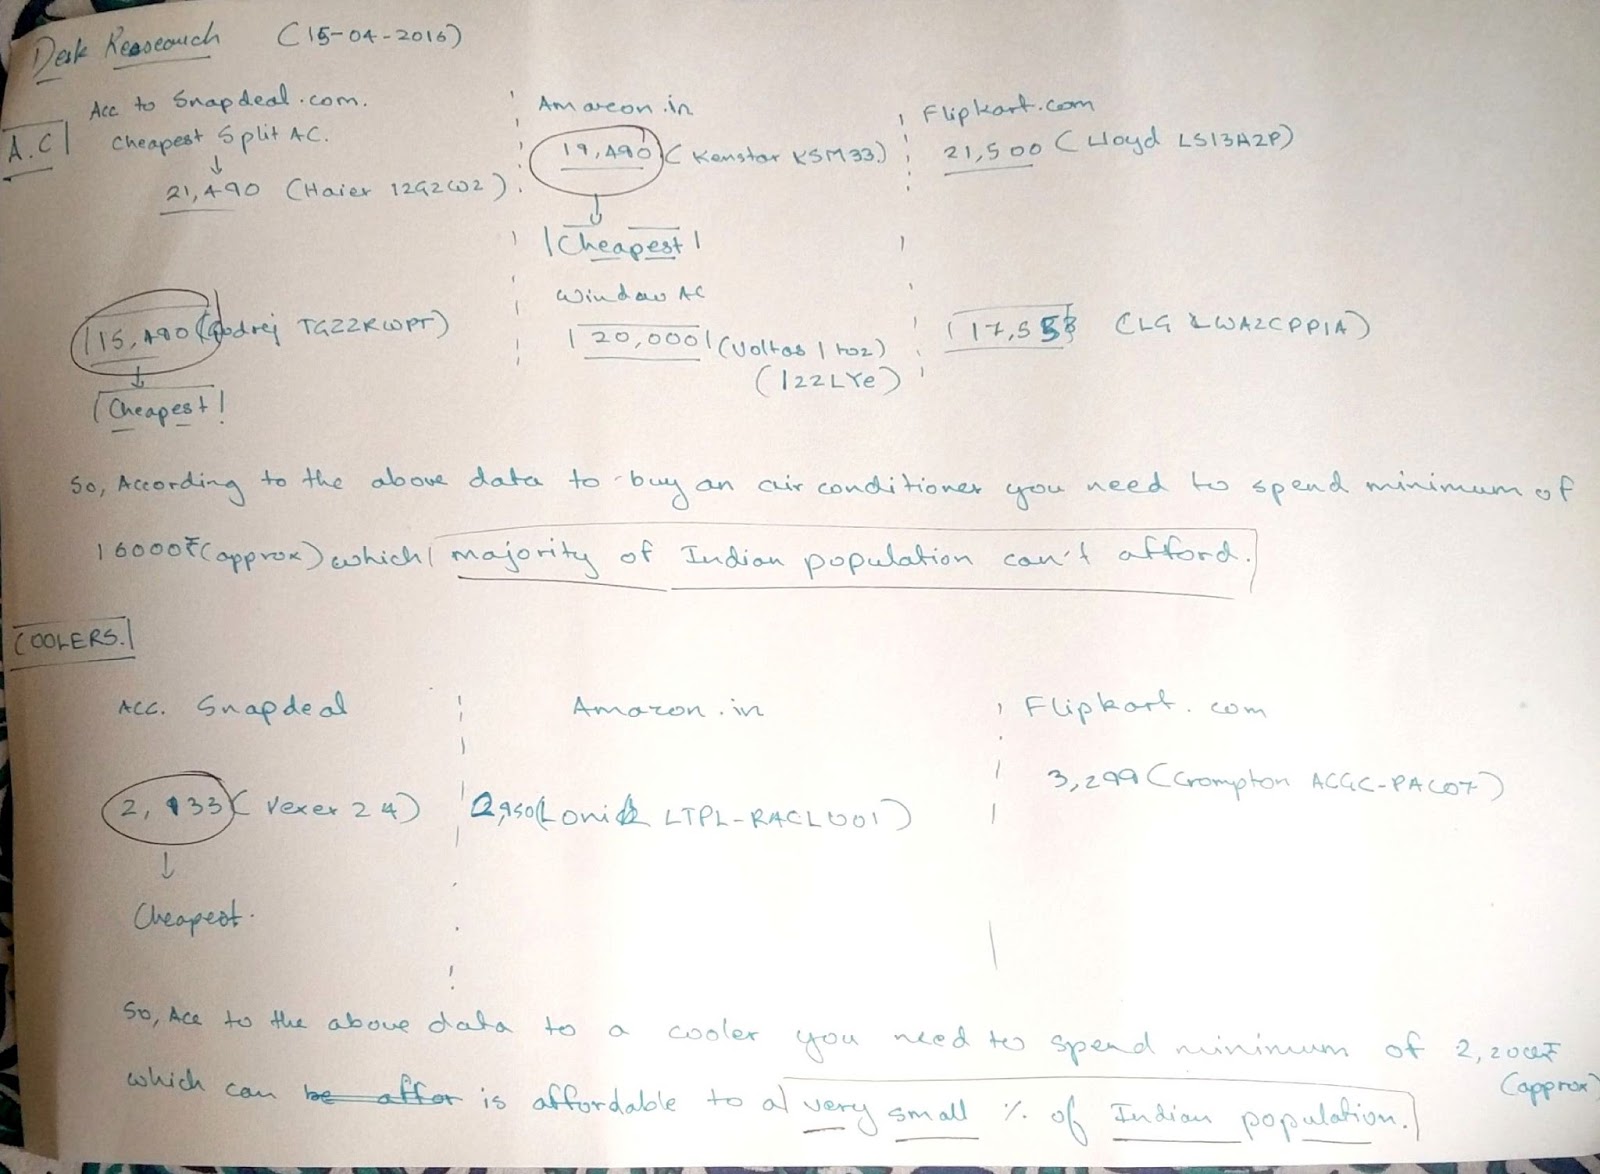 Desk Reaseauch (15-04-2016)
A.C
Acc to Snapdeal.com.
Cheapest Split AC.
↓
21,490 (Haier 12G2W2)
Amazon.in
19,490 (Kenstar KSM33.)
↓
Cheapest
Flipkart.com
21,500 (Lloyd LS13A2P)
Window AC
15,490 (Godrej TGZZRWPT)
↓
Cheapest
20,000 (Voltas 1 ton)
(122LYe)
17,553 (LG LWA2CPP1A)
So, According to the above data to buy an air conditioner you need to spend minimum of
16000₹(approx) which majority of Indian population can't afford.
COOLERS.
Acc. Snapdeal
2,133 (Vexer 24)
↓
Cheapest.
Amazon.in
2,950 (Lonik LTPL-RACL001)
Flipkart.com
3,299 (Crompton ACGC-PAC07)
So, Acc to the above data to a cooler you need to spend minimum of 2,200₹
(approx)
which can be affor is affordable to a very small % of Indian population.